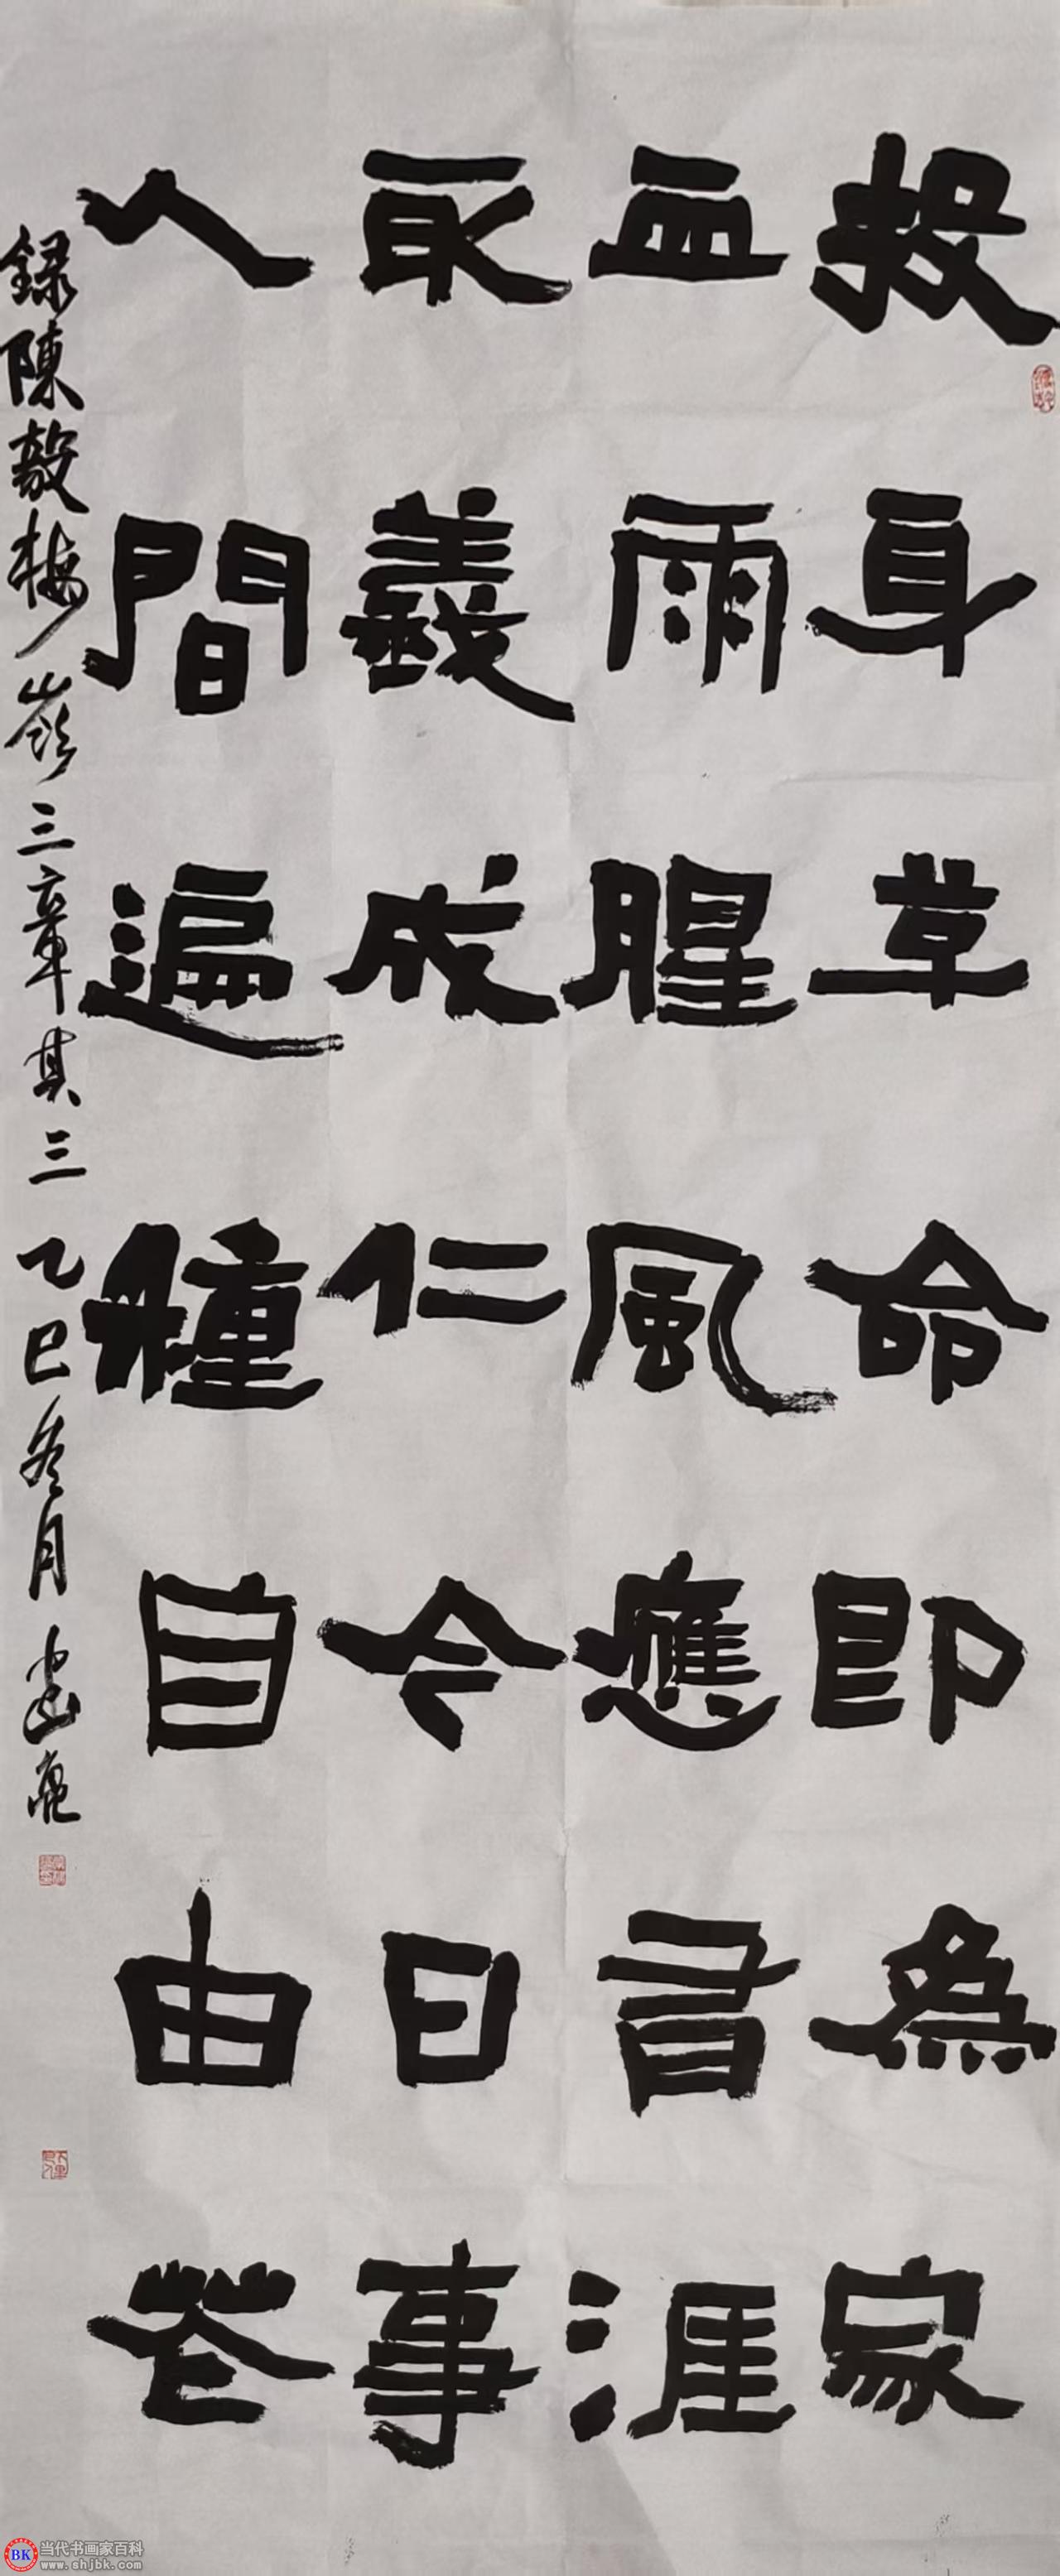 投身革命即為家
血雨腥風應有涯
取義成仁今日事
人間遍種自由花
録陳毅梅嶺三章其三 乙巳冬月
BK 当代书画家百科
www.shjbk.com